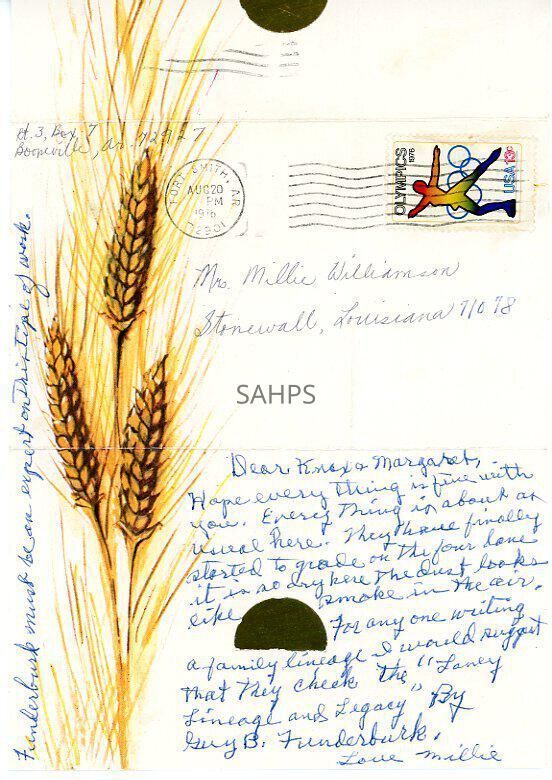 Rt. 3, Box 7
Booneville, Ar. 72927
FORT SMITH, AR
AUG 20
PM
1976
72901
OLYMPICS
1976
USA 13c
Mrs. Millie Williamson
Stonewall, Louisiana 71078
SAHPS
Dear Knox & Margaret,
Hope every thing is fine with
you. Every thing is about as
usual here. They have finally
started to grade on the four lane
it is so dry here the dust looks
like smoke in the air.
For any one writing
a family lineage I would suggest
that they check the "Laney
Lineage and Legacy" By
Guy B. Funderburk.
Love Millie
Funderburk must be an expert on this type of work.